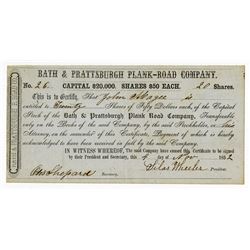 BATH & PRATTSBURGH PLANK-ROAD COMPANY.
No. 26 CAPITAL $20,000. SHARES $50 EACH. 20 Shares.
This is to Certify, That John Magee is
entitled to Twenty Shares of Fifty Dollars each, of the Capital
Stock of the Bath & Prattsburgh Plank Road Company, Transferable
only on the Books of the said Company, by the said Stockholder, or his
Attorney, on the surrender of this Certificate, Payment of which is hereby
acknowledged to have been received in full by the said Company.
IN WITNESS WHEREOF, the said Company have caused this Certificate to be signed
by their President and Secretary, this 4 day of Nov 1852
Shepard Secretary. Silas Wheeler President.